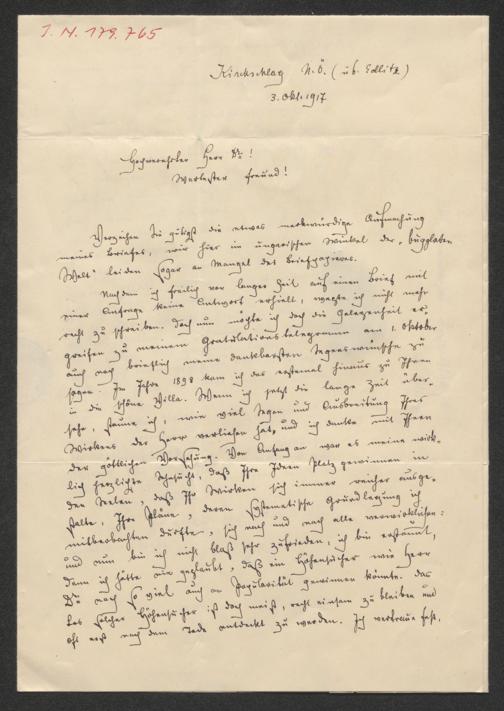 J. N. 179.765
Kirchschlag N.Ö. (üb. Edlitz)
3. Okt. 1917
Hochverehrter Herr Dr.!
Wertester Freund!
Verzeihen Sie gütigst die etwas merkwürdige Aufmachung
meines Briefes, wir hier im ungarischen Winkel der „buggladen
Welt“ leiden sogar an Mangel des Briefpapieres.
Nachdem ich freilich vor langer Zeit auf einen Brief mit
einer Anfrage keine Antwort erhielt, wagte ich nicht mehr
recht zu schreiben. Doch nun möchte ich doch die Gelegenheit er-
greifen zu meinem Gratulationstelegramm am 1. Oktober
auch noch brieflich meine dankbarsten Segenswünsche zu
sagen. Im Jahre 1898 kam ich das erstemal hinaus zu Ihnen
in die schöne Villa. Wenn ich jetzt die lange Zeit über-
sehe, staune ich, wie viel Segen und Ausbreitung Ihres
Wirkens der Herr verliehen hat, und ich danke mit Ihnen
der göttlichen Vorsehung. Von Anfang an war es meine wirk-
lich herzlichste Sehnsucht, daß Ihre Ideen Platz gewinnen in
den Seelen, daß Ihr Wirken sich immer reicher ausge-
stalte, Ihre Pläne, deren systematische Grundlegung ich
mitbeobachten durfte, sich nach und nach alle verwirklichen:
und nun bin ich nicht bloß sehr zufrieden, ich bin erstaunt,
denn ich hätte nie geglaubt, daß ein Höhensucher wie Herr
Dr. noch so viel auch an Popularität gewinnen könnte. Das
Los solcher Höhensucher ist doch meist, recht einsam zu bleiben und
oft erst nach dem Tode entdeckt zu werden. Ich vertraue fest,